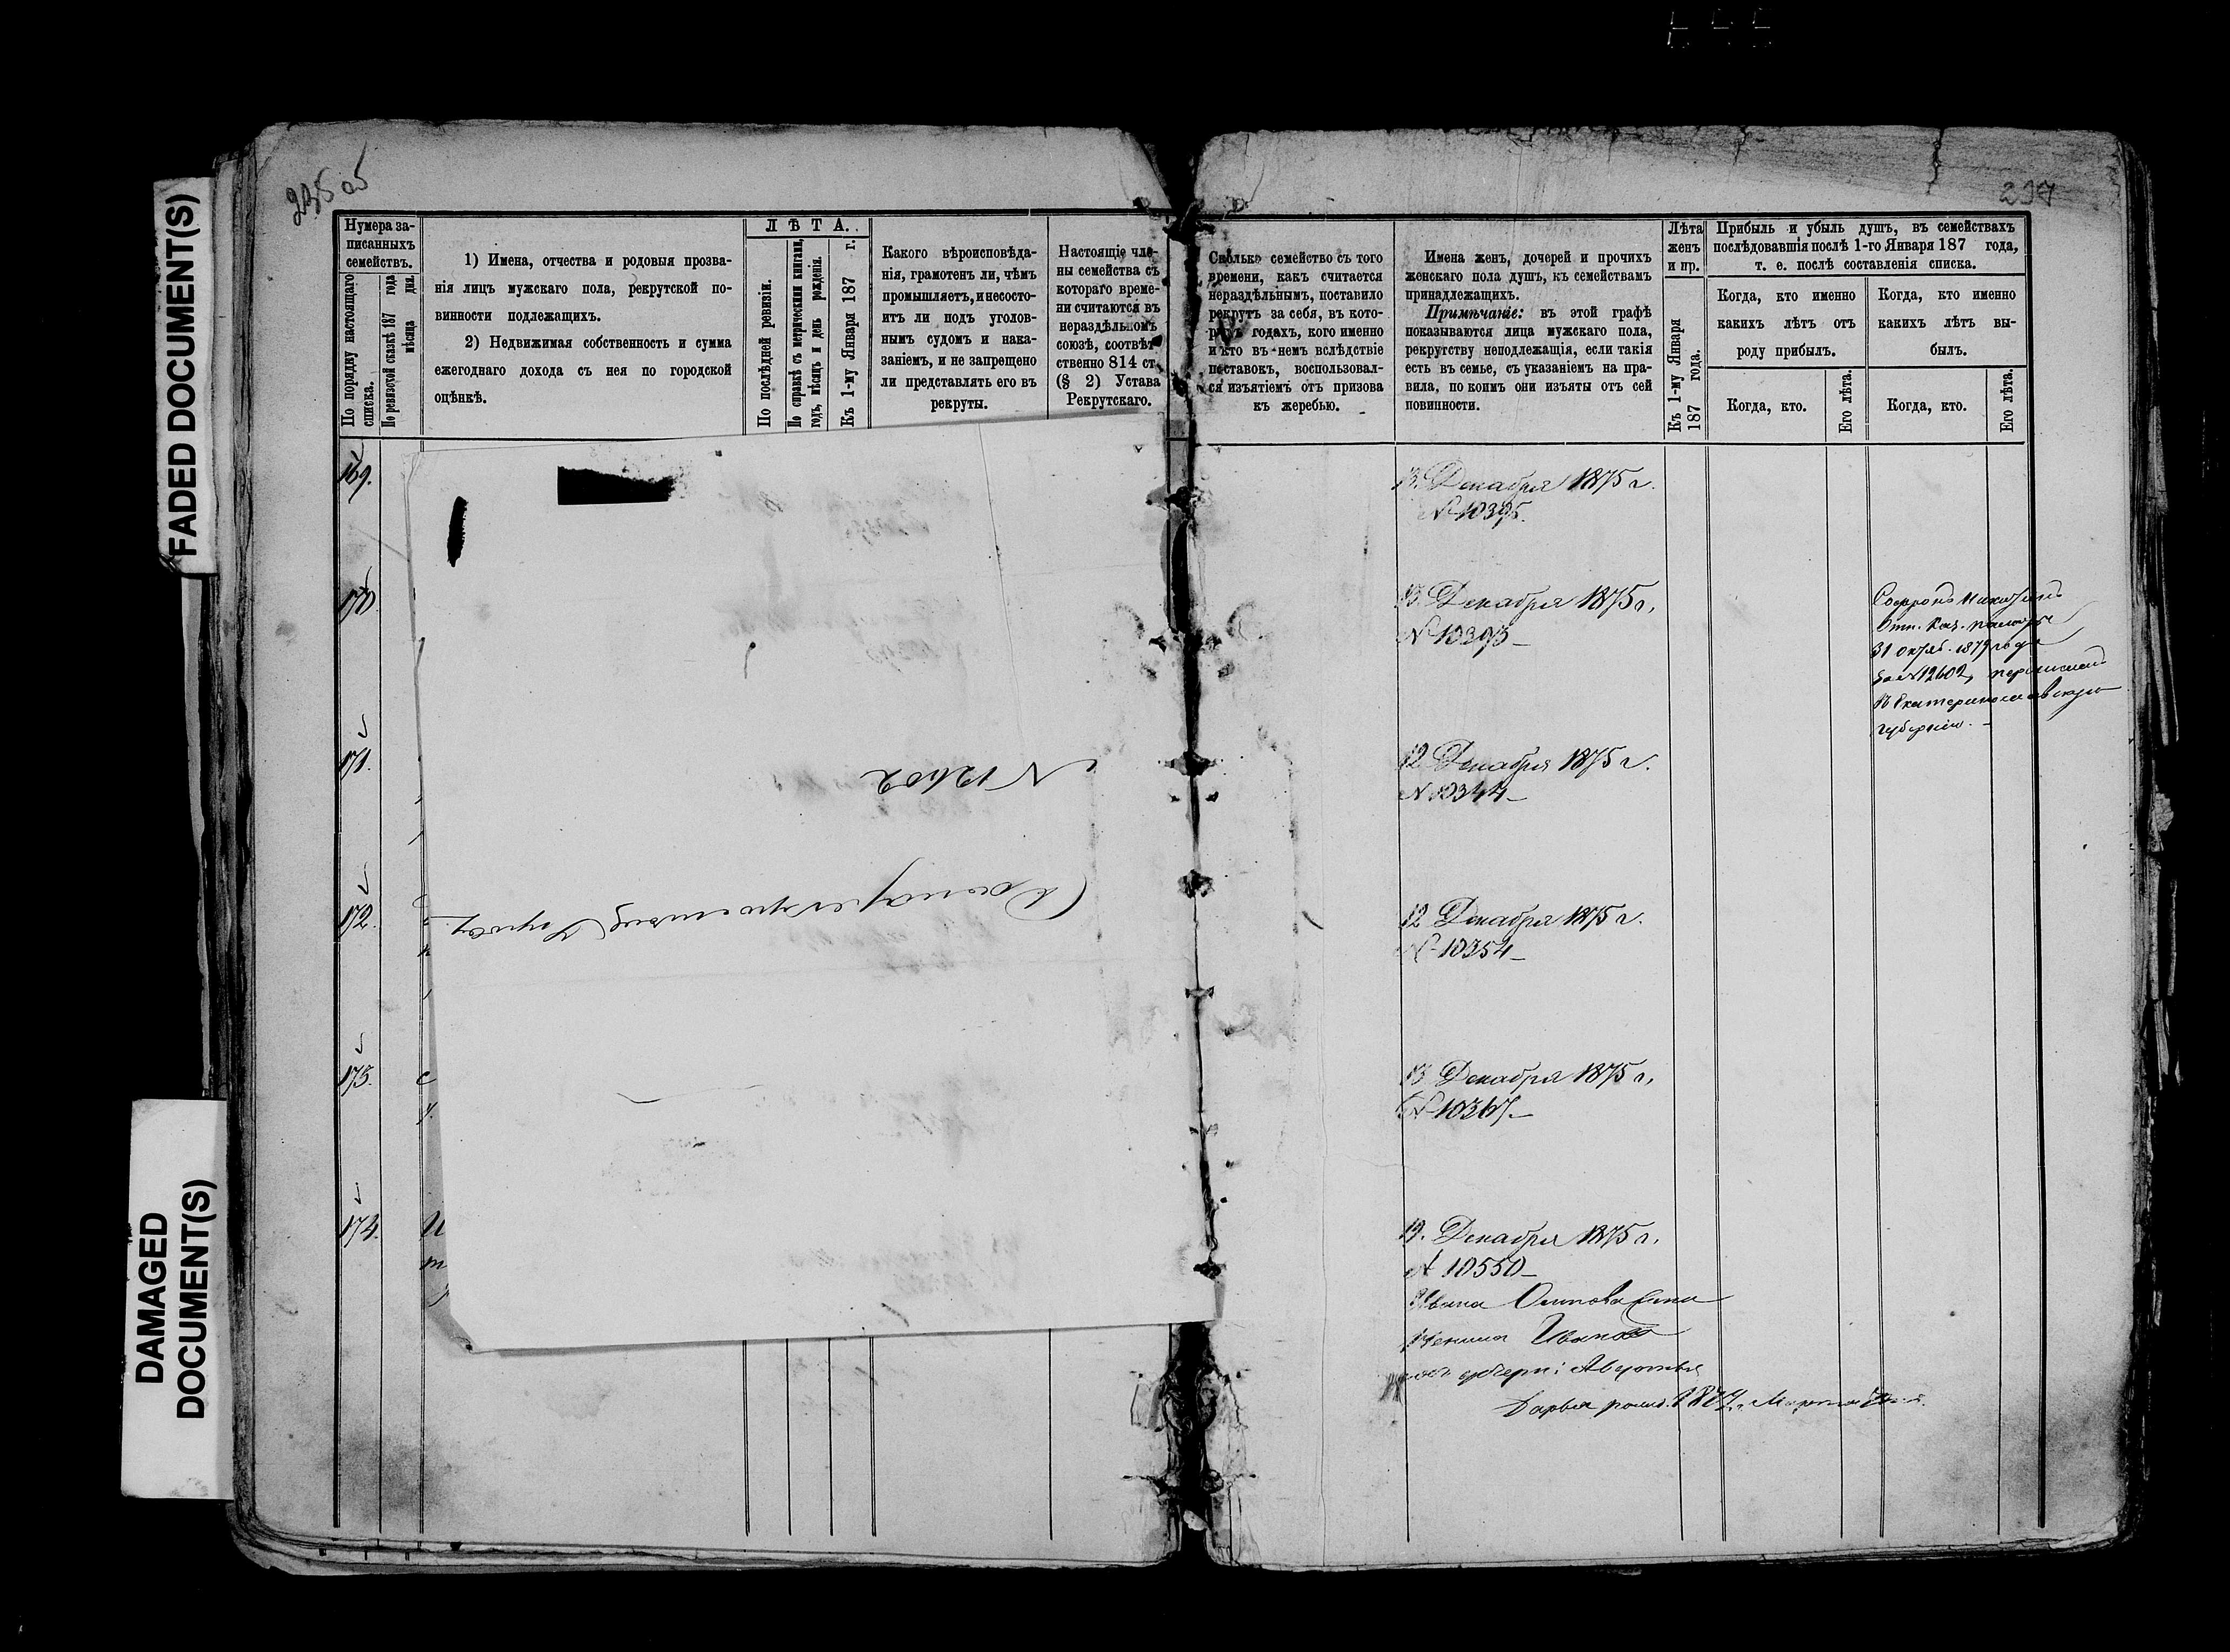 FADED DOCUMENT(S)
DAMAGED
DOCUMENT(S)
Нумера за-
писанныхъ
семействъ.
По порядку настоящаго
списка.
По ревизской сказкѣ 187 года
мѣсяца дня.
1) Имена, отчества и родовыя прозва-
нія лицъ мужскаго пола, рекрутской по-
винности подлежащихъ.
2) Недвижимая собственность и сумма
ежегоднаго дохода съ нея по городской
оцѣнкѣ.
ЛѢТА.
По послѣдней ревизіи.
По справкѣ съ метрическими книгами,
годъ, мѣсяцъ и день рожденія.
Къ 1-му Января 187 г.
Какого вѣроисповѣда-
нія, грамотенъ ли, чѣмъ
промышляетъ, и несосто-
итъ ли подъ уголов-
нымъ судомъ и нака-
заніемъ, и не запрещено
ли представлять его въ
рекруты.
Настоящіе чле-
ны семейства съ
котораго време-
ни считаются въ
нераздѣльномъ
союзѣ, соотвѣт-
ственно 814 ст.
(§ 2) Устава
Рекрутскаго.
Сколько семейство съ того
времени, какъ считается
нераздѣльнымъ, поставило
рекрутъ за себя, въ кото-
рыхъ годахъ, кого именно
и кто въ немъ вслѣдствіе
поставокъ, воспользовал-
ся изъятіемъ отъ призова
къ жеребью.
Имена женъ, дочерей и прочихъ
женскаго пола душъ, къ семействамъ
принадлежащихъ.
Примѣчаніе: въ этой графѣ
показываются лица мужскаго пола,
рекрутству неподлежащія, если такія
есть въ семье, съ указаніемъ на пра-
вила, по коимъ они изъяты отъ сей
повинности.
Лѣта
женъ
и пр.
Къ 1-му Января
187 года.
Прибыль и убыль душъ, въ семействахъ
послѣдовавшія послѣ 1-го Января 187 года,
т. е. послѣ составленія списка.
Когда, кто именно
какихъ лѣтъ отъ
роду прибылъ.
Когда, кто.
Его лѣта.
Когда, кто именно
какихъ лѣтъ вы-
былъ.
Когда, кто.
Его лѣта.
169.
13 Декабря 1875 г.
№ 10395.
170
13 Декабря 1875 г.
№ 10393
31 октяб. 1879 года
за №12602, перечисленъ
въ Екатеринославскую
губернію.
171.
12 Декабря 1875 г.
№ 10344
№ 12602
172.
12 Декабря 1875 г.
№ 10354
173.
13 Декабря 1875 г.
№ 10367
174.
19. Декабря 1875 г.
№ 10550
Ивана Осипова сына
Иванова
Дарья
Марта